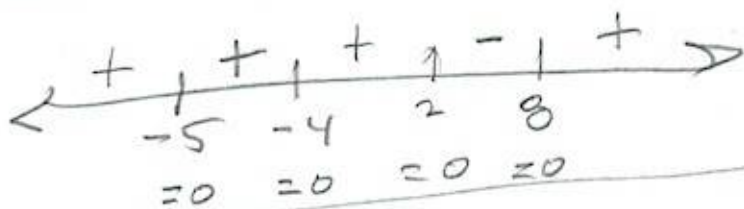 + + + - +
-5 -4 2 8
=0 =0 =0 =0